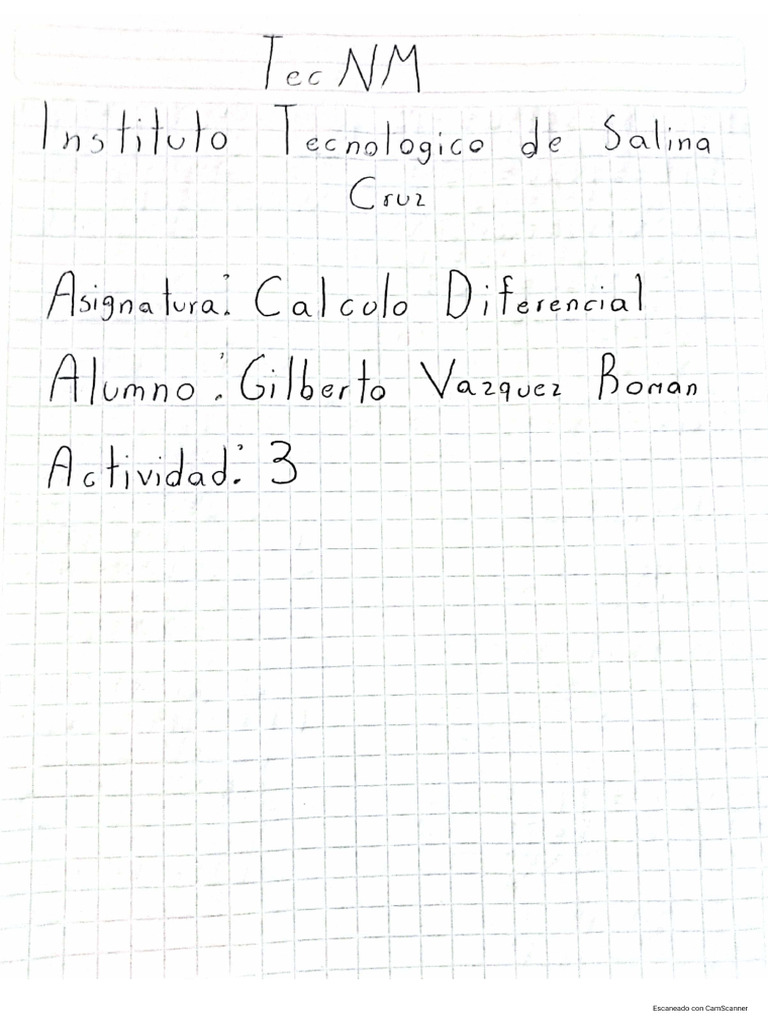 TecNM
Instituto Tecnologico de Salina
Cruz
Asignatura: Calculo Diferencial
Alumno: Gilberto Vazquez Roman
Actividad: 3
Escaneado con CamScanner